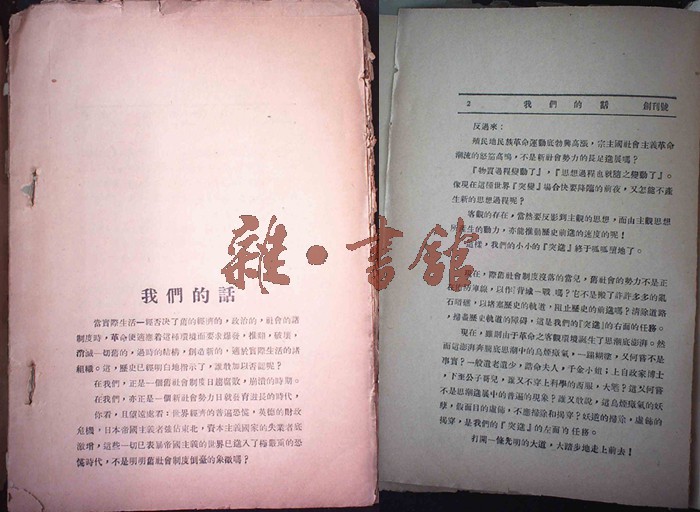 我們的話
當實際生活一經否決了舊的經濟的，政治的，社會的諸
制度時，革命便適應着這種環境而要求爆發，推翻，破壞，
消滅一切舊的，過時的結構，創造新的，適於實際生活的諸
組織。這，歷史已經明白地指示了，誰敢加以否認呢？
在我們，正是一個舊社會制度日趨腐敗，崩潰的時期。
在我們，亦正是一個新社會勢力日就發育滋長的時代，
你看，且望遠處看：世界經濟的普遍恐慌，英德的財政
危機，日本帝國主義者强佔東北，資本主義國家的失業者底
激增，這些一切已表暴帝國主義的世界已邁入了極嚴重的恐
慌時代，不是明明舊社會制度倒臺的象徵嗎？
2 我們的話 創刊號
反過來：
殖民地民族革命運動底勃興高漲，宗主國社會主義革命
潮流的怒號高鳴，不是新社會勢力的長足邁展嗎？
『物質過程變動了』，『思想過程也就隨之變動了』。
像現在這種世界『突變』場合快要降臨的前夜，又怎能不產
生新的思想過程呢？
客觀的存在，當然要反影到主觀的思想，而由主觀思想
所產生的動力，亦能推動歷史前邁的速度的呢！
這樣，我們的小小的『突邁』終于呱呱墮地了。
現在，際舊社會制度沒落的當兒，舊社會的勢力不是正
在佈防陣線，以作『背城一戰』嗎？它不是搬了許許多多的亂
石瓦礫，以堵塞歷史的軌道，阻止歷史的前邁嗎？清除道路
，掃盡歷史軌道的障碍，這是我們的『突邁』的右面的任務。
現在，雖則由于革命之客觀環境誕生了思潮底澎湃。然
而這澎湃奔騰底思潮中的烏煙瘴氣，一蹋糊塗，又何嘗不是
事實？一般遺老遺少，誥命夫人，千金小姐；上自政客博士，
下至公子哥兒，誰又不穿上科學的西服，大氅？這又何嘗
不是思潮邁展中的普遍的現象？誰又敢說，這烏煙瘴氣的妖
孽，假面目的虛飾，不應掃除和揭穿？妖逆的掃除，虛飾的
揭穿，是我們的『突邁』的左面的任務。
打開一條光明的大道，大踏步地走上前去！
雜·書館